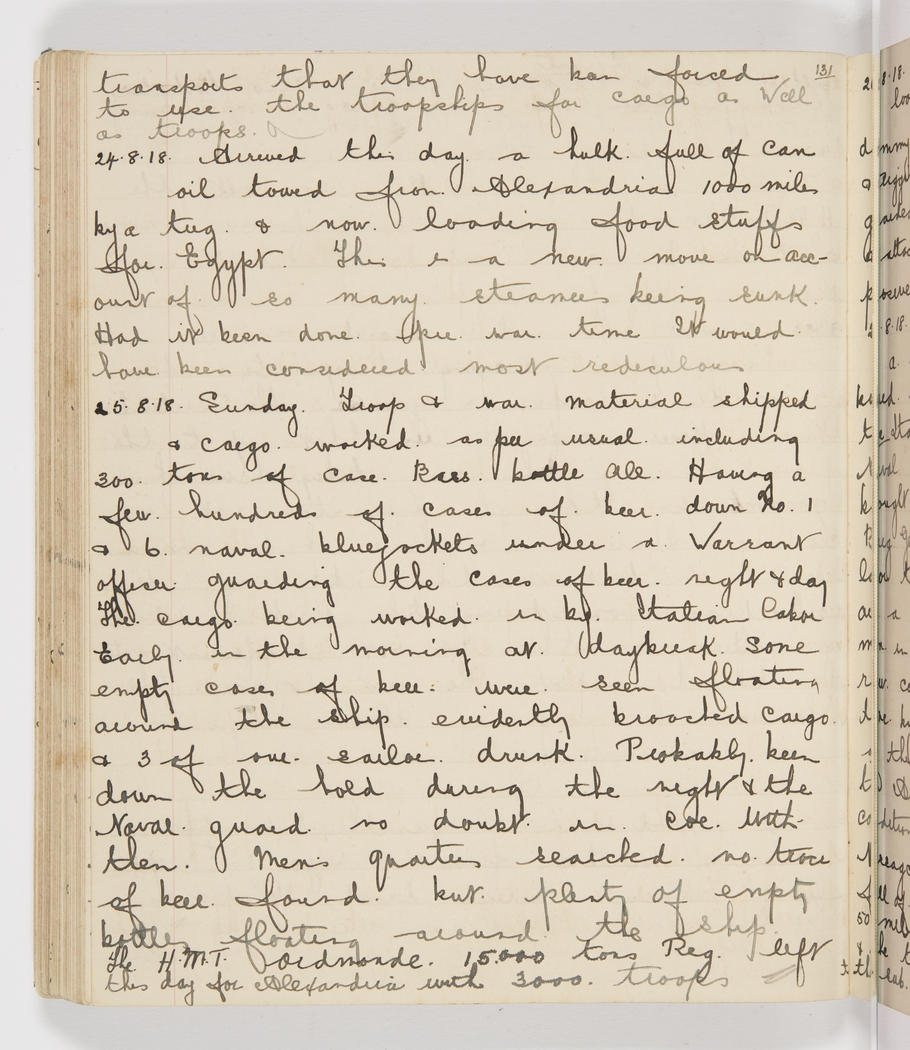 131
transports that they have been forced
to use. the troopships for cargo as Well
as troops.
24.8.18. Arrived this day a hulk. full of Can
oil towed from Alexandria 1000 miles
by a tug. & now. loading food stuffs
for. Egypt. This is a new. move on acc-
ount of. so many. steamers being sunk.
Had it been done. pre war. time It would
have been considered most rediculous
25.8.18. Sunday. Troop & war. material shipped
& cargo. worked. as per usual. including
300. tons of case. Bass. bottle Ale. Having a
few. hundreds of. cases of. beer. down No. 1
& 6. naval. bluejackets under a. Warrant
officer guarding the cases of beer. night & day
The. cargo. being worked. in by. Italian Labor
Early. in the morning at. daybreak. some
empty cases of beer. were. seen floating
around the ship. evidently broached cargo.
& 3 of our. sailor. drunk. Probably. been
down the hold during the night & the
Naval. guard. no doubt. in. Coe. With-
them. Mens quarters searched. no. trace
of beer. found. but. plenty of empty
bottles floating around the ship.
The H.M.T. 15.000 tons Reg. left
this day for Alexandria with 3000. troops